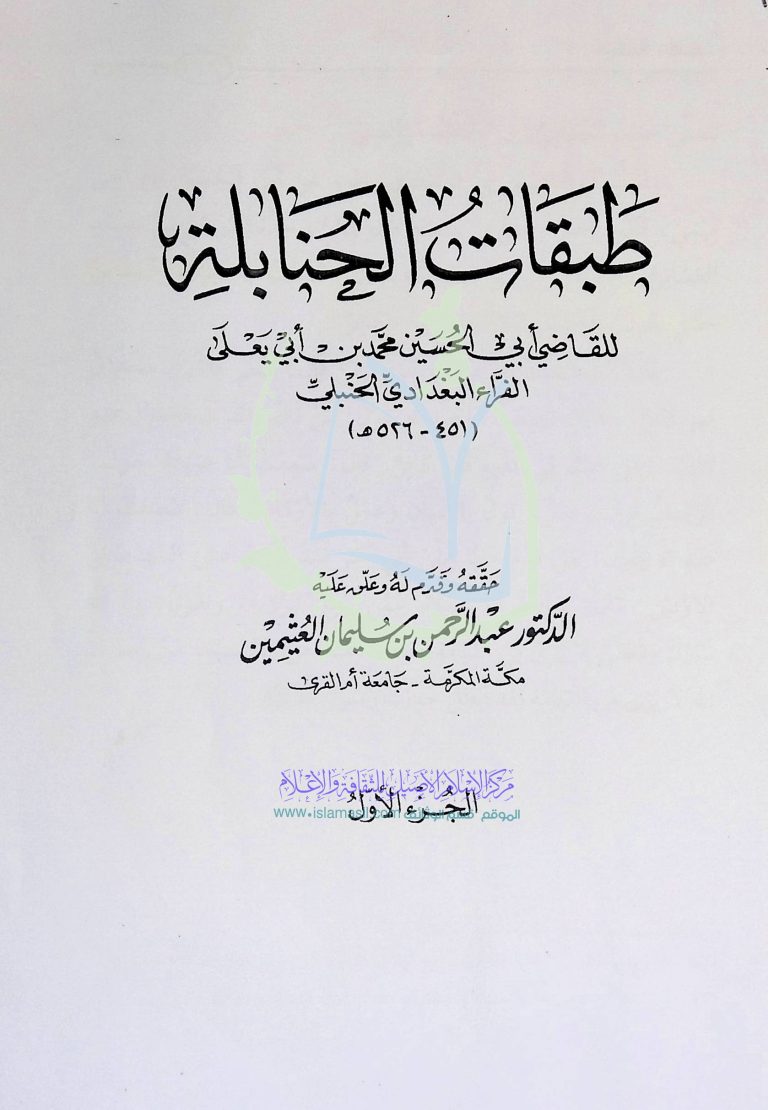 طَبَقَاتُ الحَنَابلةِ
للقَاضِي أبي الحُسَيْن محمَّد بن أبي يَعْلَى
الفَرَّاء البَغْدَاديِّ الحَنْبليِّ
(٤٥١ - ٥٢٦ هـ)
حَقَّقهُ وَقَدَّم لَهُ وعَلّق عَلَيْه
الدّكتور عبْد الرَّحمن بن سُليمان العُثيمِين
مكّة المكرّمة - جَامعَة أم القرى
مركز الإسلام الأصيل للثقافة والإعلام
الجُزء الأولُ
الموقع قسم الوثائق www.islamasil.com